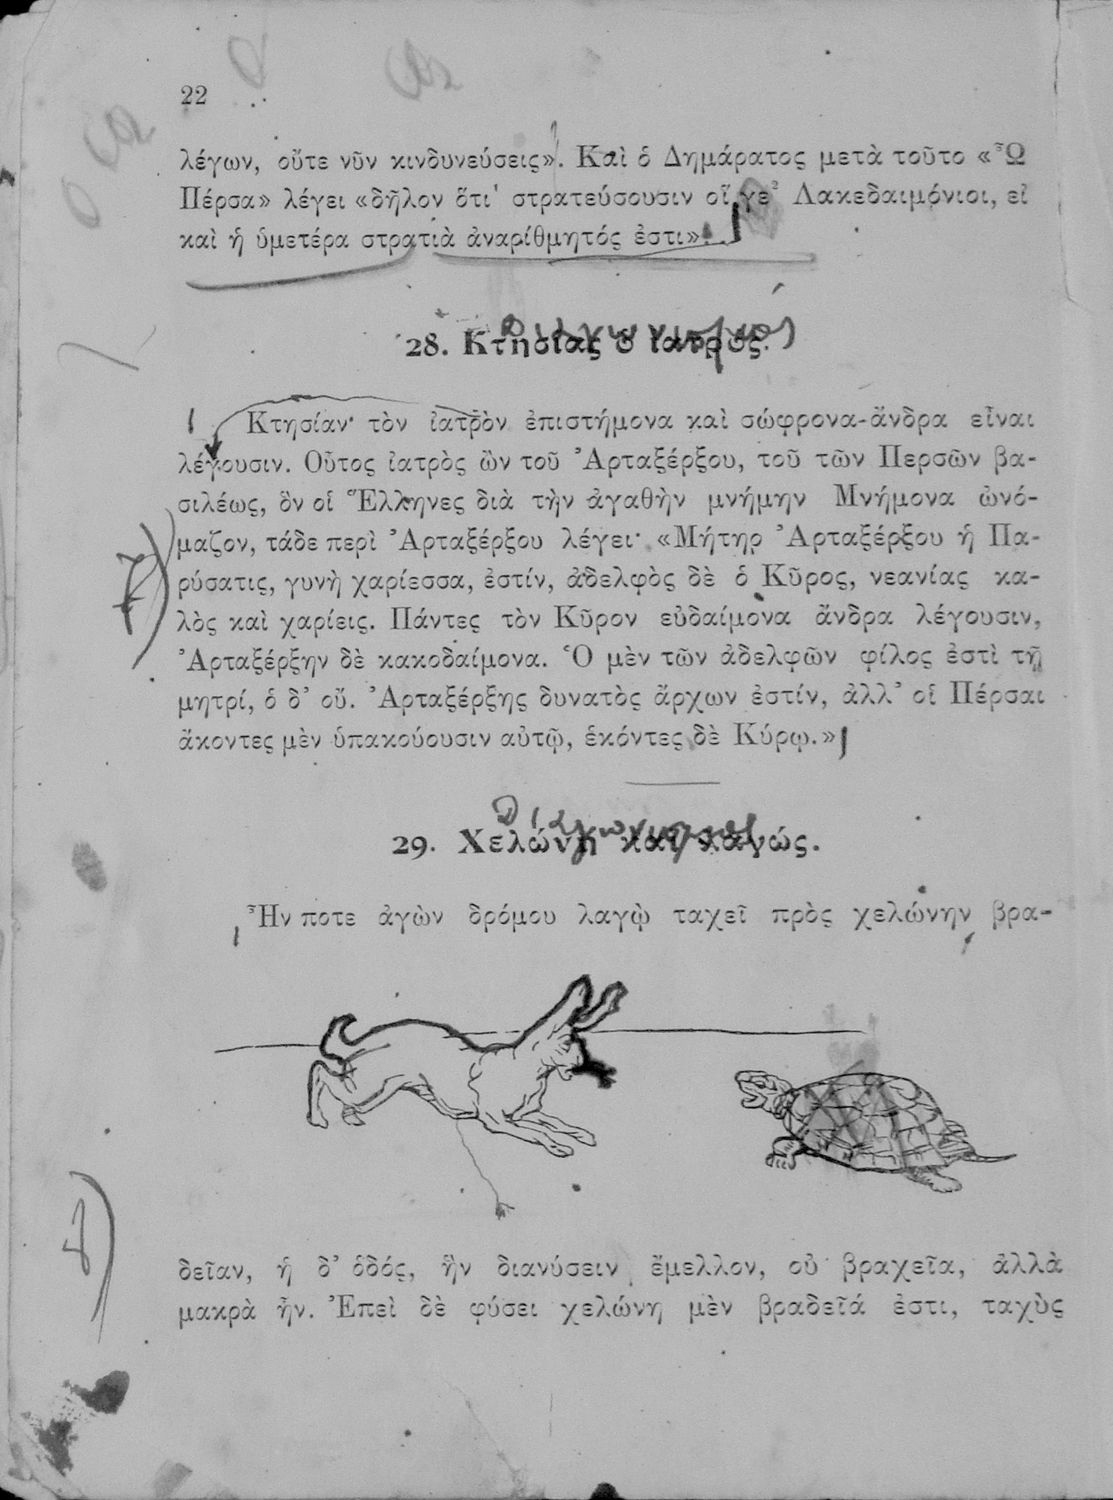 22
λέγων, οὔτε νῦν κινδυνεύσεις». Καὶ ὁ Δημάρατος μετὰ τοῦτο «Ὦ
Πέρσα» λέγει «δῆλον ὅτι στρατεύσουσιν οἵ γε Λακεδαιμόνιοι, εἰ
καὶ ἡ ὑμετέρα στρατιὰ ἀναρίθμητός ἐστι».
28. Κτησίας ὁ ἰατρός.
Κτησίαν τὸν ἰατρὸν ἐπιστήμονα καὶ σώφρονα ἄνδρα εἶναι
λέγουσιν. Οὗτος ἰατρὸς ὢν τοῦ Ἀρταξέρξου, τοῦ τῶν Περσῶν βα-
σιλέως, ὃν οἱ Ἕλληνες διὰ τὴν ἀγαθὴν μνήμην Μνήμονα ὠνό-
μαζον, τάδε περὶ Ἀρταξέρξου λέγει· «Μήτηρ Ἀρταξέρξου ἡ Πα-
ρύσατις, γυνὴ χαρίεσσα, ἐστίν, ἀδελφὸς δὲ ὁ Κῦρος, νεανίας κα-
λὸς καὶ χαρίεις. Πάντες τὸν Κῦρον εὐδαίμονα ἄνδρα λέγουσιν,
Ἀρταξέρξην δὲ κακοδαίμονα. Ὁ μὲν τῶν ἀδελφῶν φίλος ἐστὶ τῇ
μητρί, ὁ δ' οὔ. Ἀρταξέρξης δυνατὸς ἄρχων ἐστίν, ἀλλ' οἱ Πέρσαι
ἄκοντες μὲν ὑπακούουσιν αὐτῷ, ἑκόντες δὲ Κύρῳ.»
7)
29. Χελώνη καὶ λαγώς.
Ἦν ποτε ἀγὼν δρόμου λαγῲ ταχεῖ πρὸς χελώνην βρα-
δεῖαν, ἡ δ' ὁδός, ἣν διανύσειν ἔμελλον, οὐ βραχεῖα, ἀλλὰ
μακρὰ ἦν. Ἐπεὶ δὲ φύσει χελώνη μὲν βραδεῖά ἐστι, ταχὺς
8)